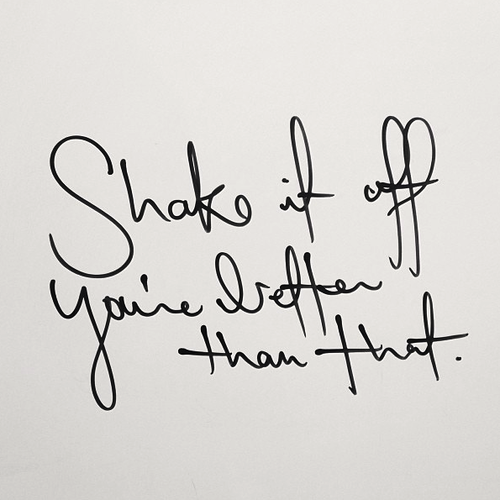 Shake it off
you're better
than that.